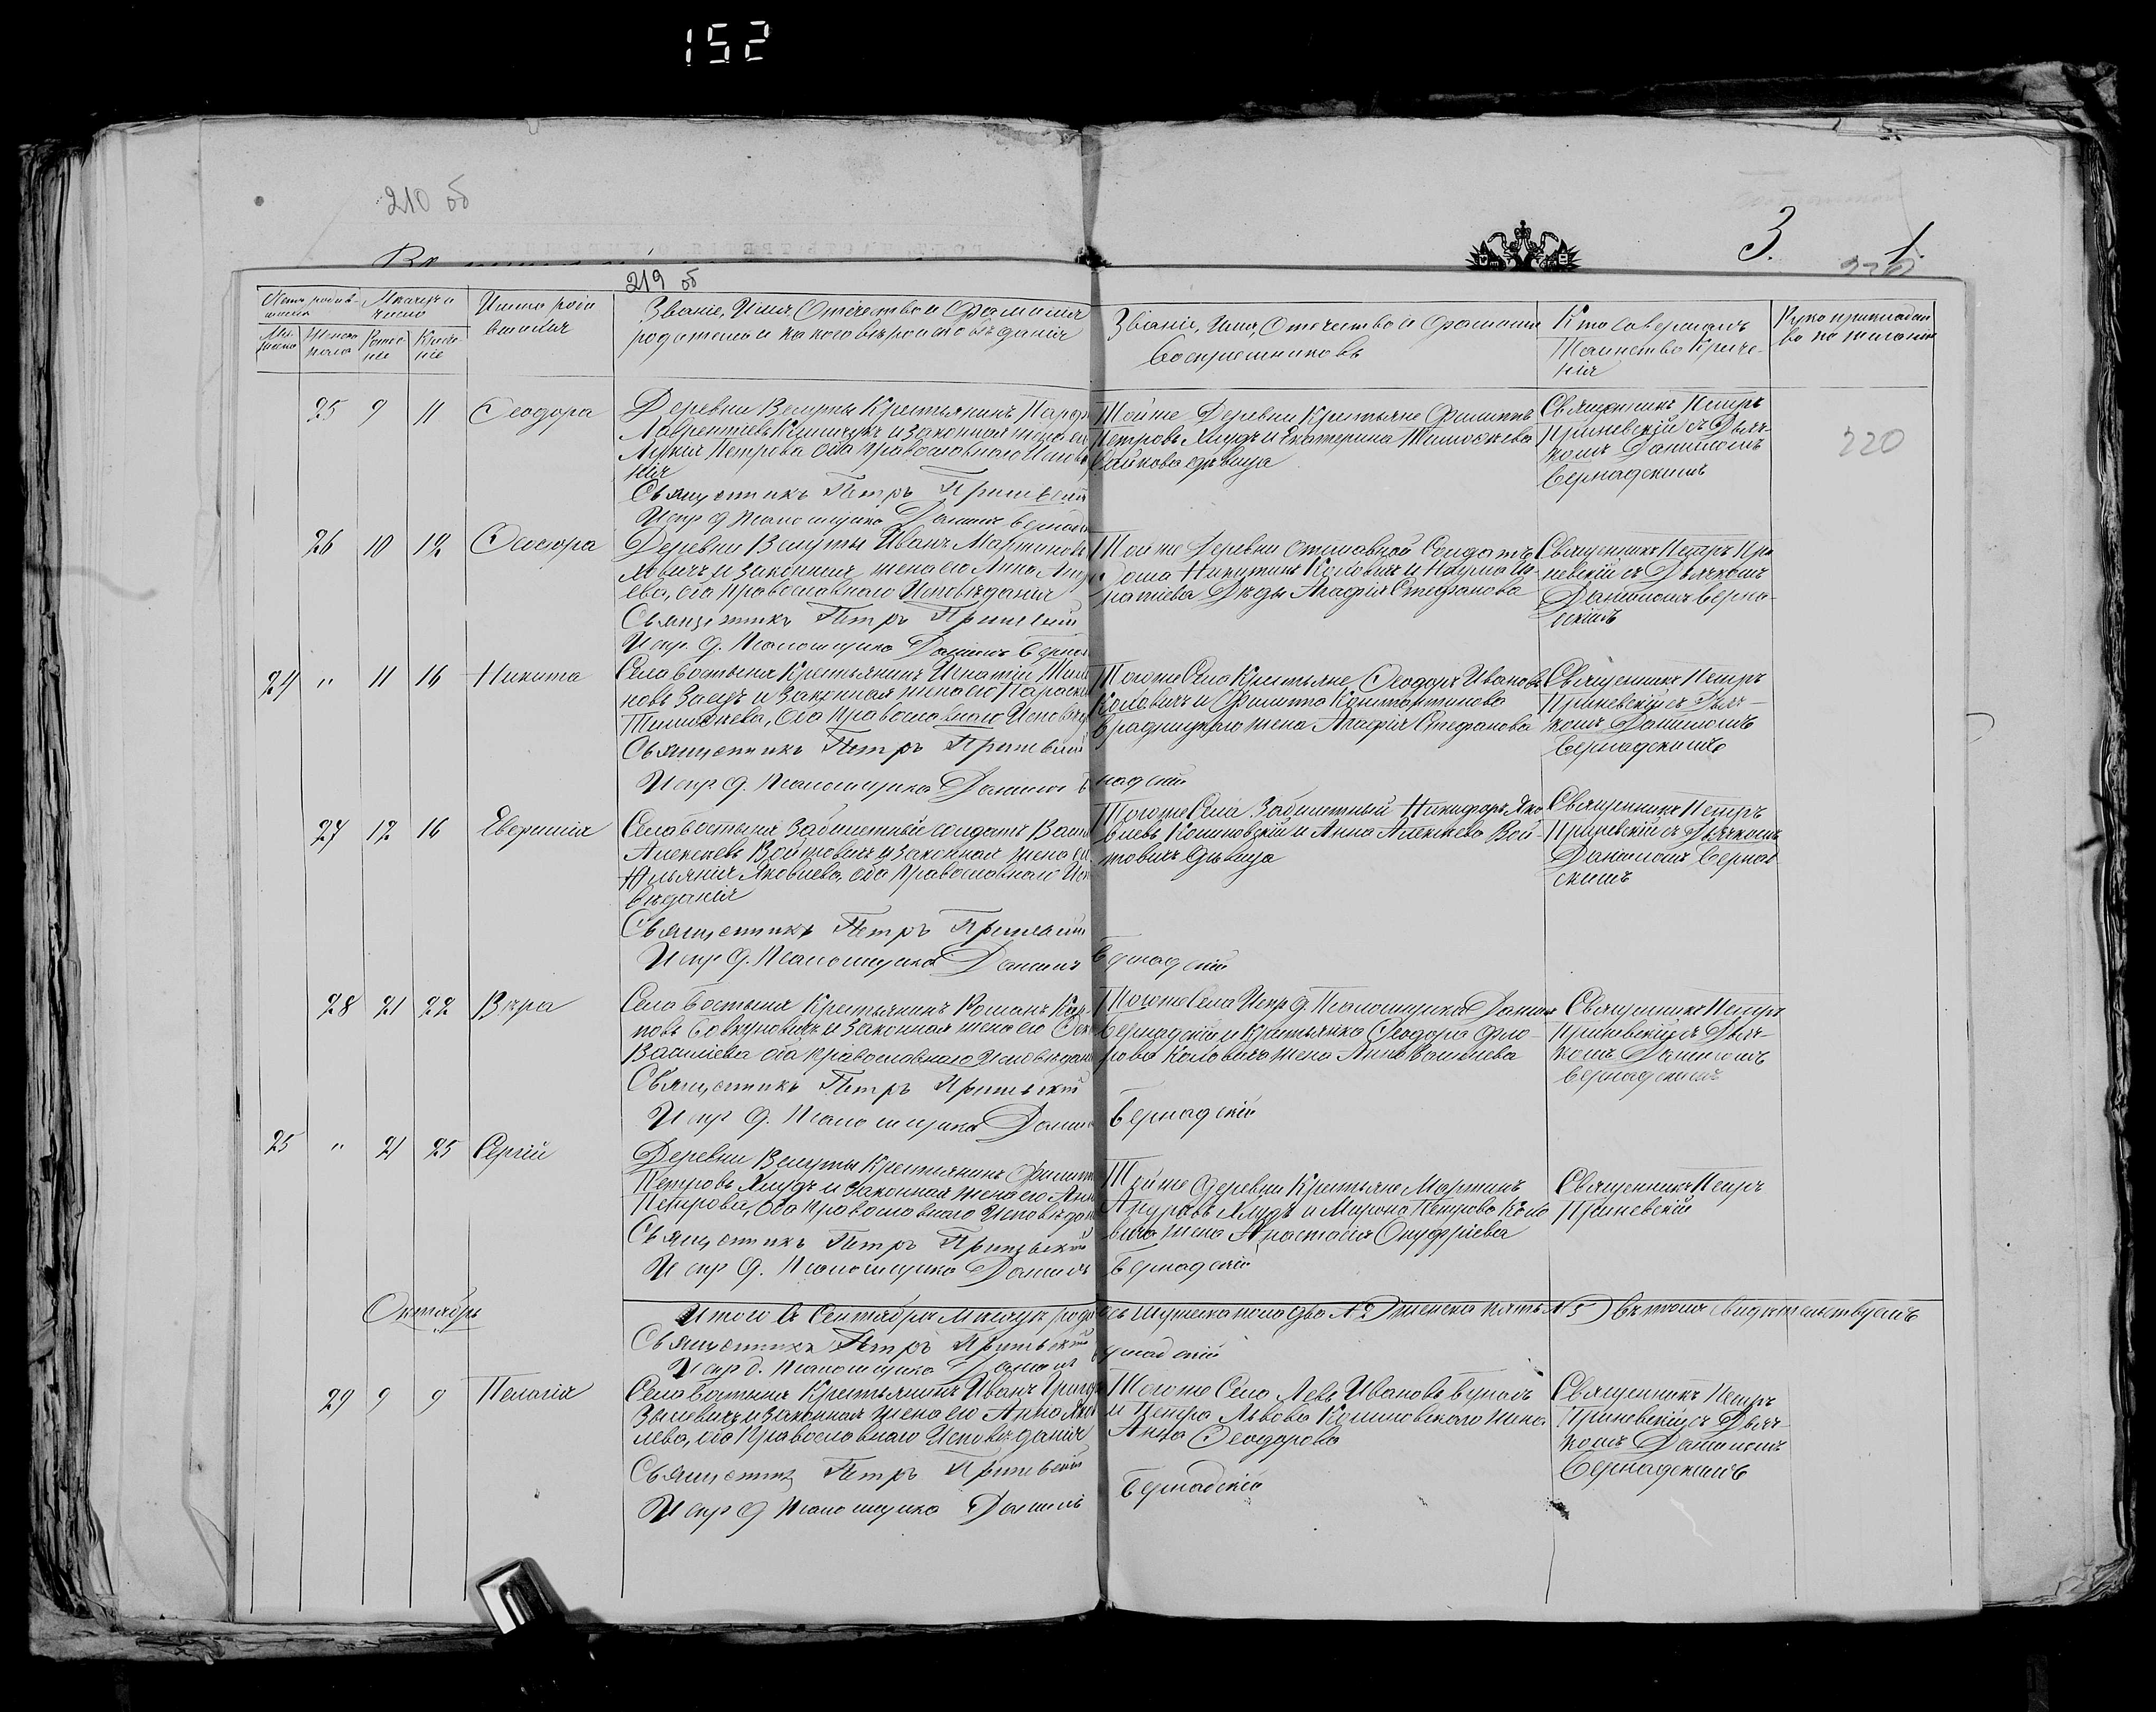 152
210 об
3.
1.
219 об
220
Мѣсяцъ и число
Имена роди
вшихся
Званіе, Имя, Отечество и Фамилія
родителей и какого вѣроисповѣданія
Званіе, Имя, Отечество и Фамилія
Воспріемниковъ
Кто совершалъ
Таинство Креще-
нія
Рукоприкладст
во по желанію
25 9 11 Ѳеодора
Деревни Велуты Крестьянинъ
Лаврентьевъ и законная жена его
Петрова оба Православнаго Исповѣда
нія
Священникъ Петръ Приневскій
Испр д Псаломщика Даніилъ Бернад
Тойже Деревни Крестьяне Филиппъ
Петровъ Хлудъ и Екатерина Тимоѳеева
дѣвица
Священникъ Петръ
Приневскій съ Дьяч-
комъ Даніиломъ
Бернадскимъ
220
26 10 12
Деревни Велуты Иванъ Мартиновъ
ловичъ и законная жена его Анна Андре
ева, оба Православнаго Исповѣданія
Священникъ Петръ Приневскій
Испр. д. Псаломщика Даніилъ Берна
Тойже Деревни отставной Солдатъ
Никитинъ Коловичъ и Наума Иг
натіева Дѣды Агафія Стефанова
Священникъ Петръ При
невскій съ Дьячкомъ
Даніиломъ Берна-
дскимъ
24 " 11 16 Никита
Села Бостыня Крестьянинъ Игнатій
новъ Заецъ и законная жена его Параске
Тимоѳеева, оба Православнаго Исповѣд
Священникъ Петръ Приневскій
Испр д. Псаломщика Даніилъ Бер
надскій
Тогоже Села Крестьяне Ѳеодоръ Ивановъ
Коловичъ и Филиппа Константинова
жена Агафія Стефанова
Священникъ Петръ
Приневскій съ Дьяч-
комъ Даніиломъ
Бернадскимъ
27 12 16 Евфимія
Села Бостыня Забилетный солдатъ Васил
Алексѣевъ Войтовичъ и законная жена его
Юліянія Яковлева, оба Православнаго Испо
вѣданія
Священникъ Петръ Приневскій
Испр д. Псаломщика Даніилъ
Бернадскій
Тогоже Села Забилетный Никифоръ Яко
влевъ Калиновскій и Анна Алексѣева Вой-
товичъ дѣвица
Священникъ Петръ
Приневскій съ Дьячкомъ
Даніиломъ Бернад
скимъ
28 21 22 Вѣра
Села Бостыня Крестьянинъ Романъ Кар-
повъ Бовкуновичъ и законная жена его
Василіева оба Православнаго Исповѣдан
Священникъ Петръ Приневскій
Испр д. Псаломщика Даніилъ
Бернадскій
Тогоже Села Испр д. Псаломщика Даніилъ
Бернадскій и Крестьянка Ѳеодора Фло-
рова Коловича жена Анна Василіева
Священникъ Петръ
Приневскій съ Дьяч-
комъ Даніиломъ
Бернадскимъ
25 " 21 25 Сергій
Деревни Велуты Крестьянинъ Филиппъ
Петровъ Хлудъ и законная жена его Анна
Петрова, оба Православнаго Исповѣдан
Священникъ Петръ Приневскій
Испр д. Псаломщика Даніилъ
Бернадскій
Тойже деревни Крестьяне Мартинъ
Хлудъ и Мирона Петрова Коло
вича жена Анастасія Онуфріева
Священникъ Петръ
Приневскій
Октябрь
Итого въ Сентябрѣ Мѣсяцѣ роди ось мужеска пола два № 2 женска пять № 5 въ томъ свидѣтельствуемъ
Священникъ Петръ Приневскій
Испр д. Псаломщика Даніилъ
Бернадскій
29 9 9 Пелагія
Села Бостыня Крестьянинъ Иванъ Григо
и законная жена его Анна Яков
лева, оба Православнаго Исповѣданія
Священникъ Петръ Приневскій
Испр д Псаломщика Даніилъ
Бернадскій
Тогоже Села Левъ Ивановъ
и Петра Львова Калиновскаго жена
Анна Ѳеодорова
Священникъ Петръ
Приневскій съ Дьяч-
комъ Даніиломъ
Бернадскимъ